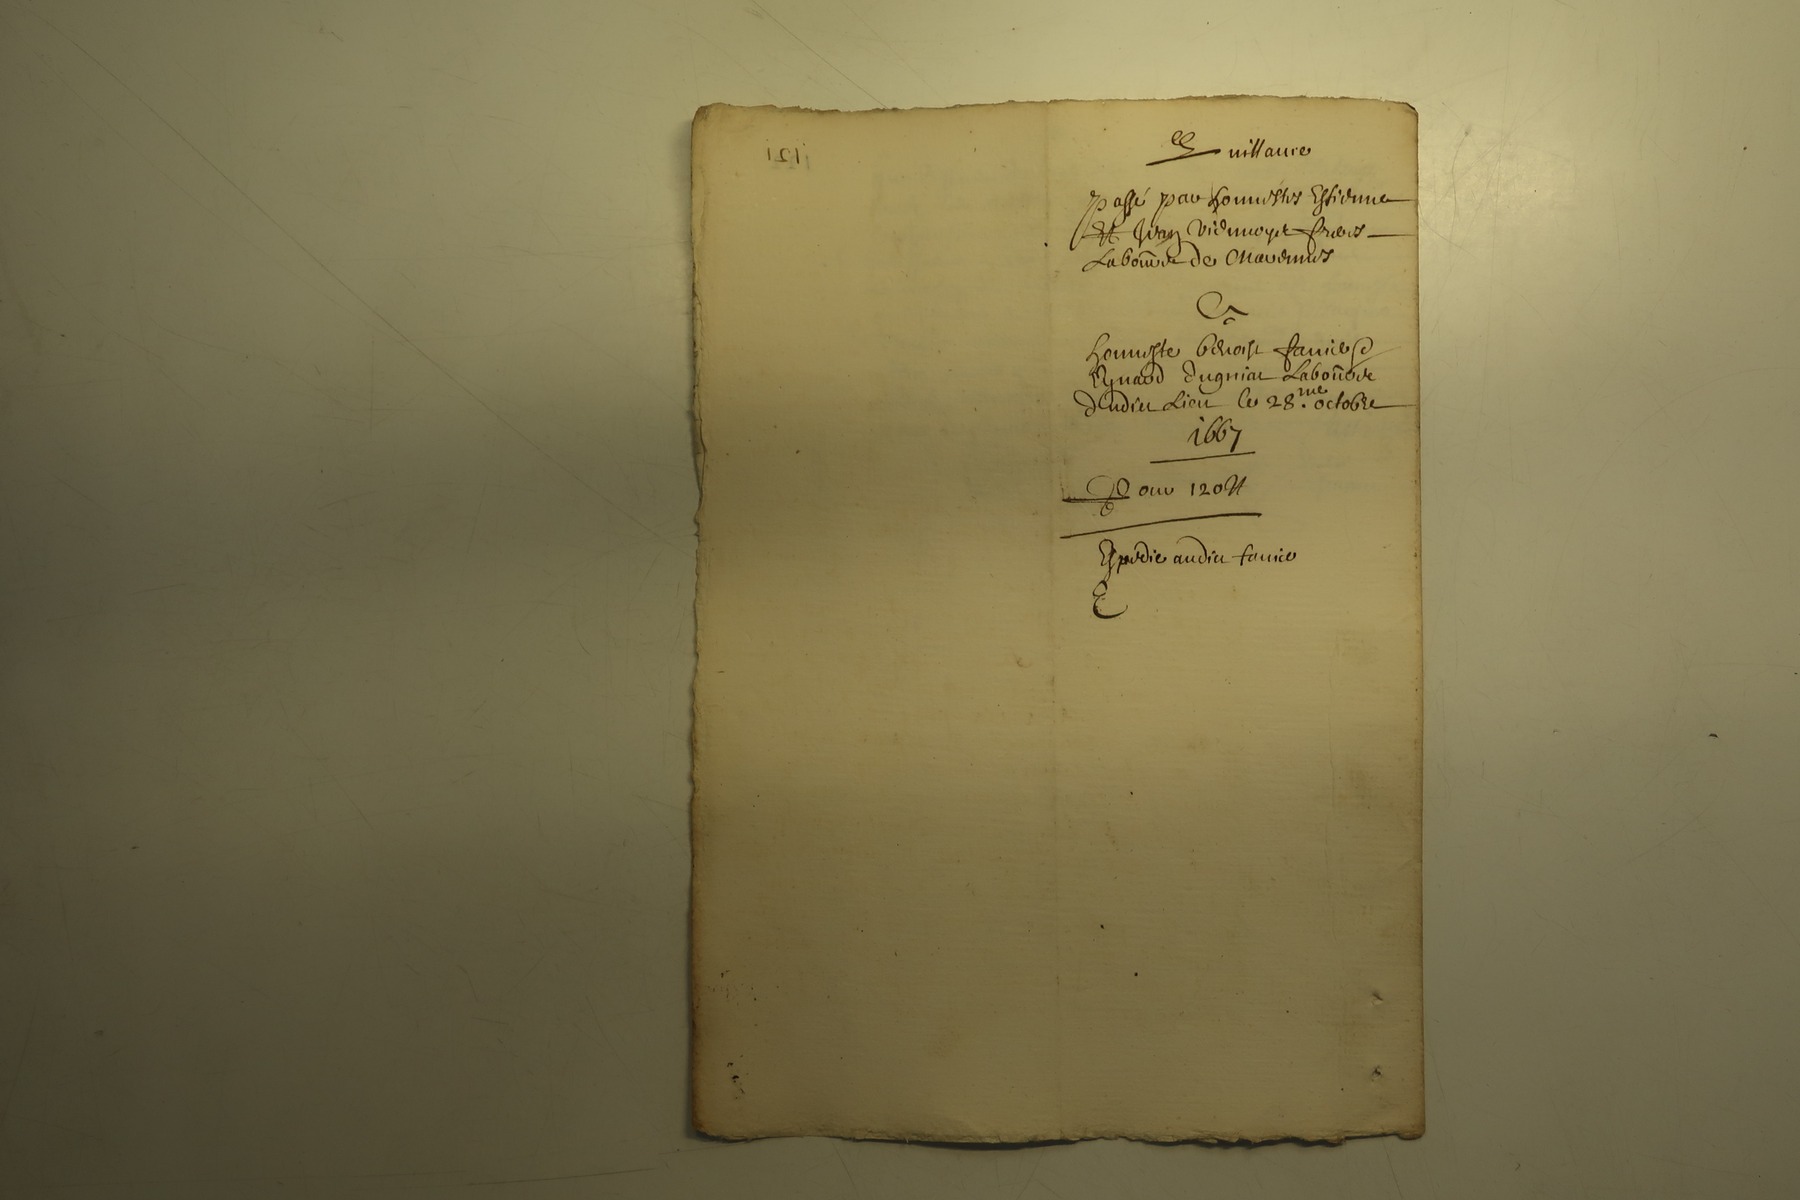 Quittance
passé par honnestes Estienne
Et Jean Viennoyet freres
Labour de Mavennes
A
honneste benoist fauice
Eynard dugniat Laboure
dudit Lieu le 28.me octobre
1667
Pour 120 tt
Expedie audit fauice
E
1121